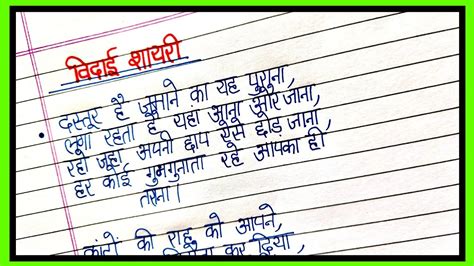 विदाई शायरी
• दस्तूर है जमाने का यह पुराना,
लगा रहता है यहां आना और जाना,
रहो जहां अपनी छाप ऐसे छोड़ जाना,
हर कोई गुमगुनाता रहे आपका ही
तराना।
कांटों की राह को आपने,
कर दिया,